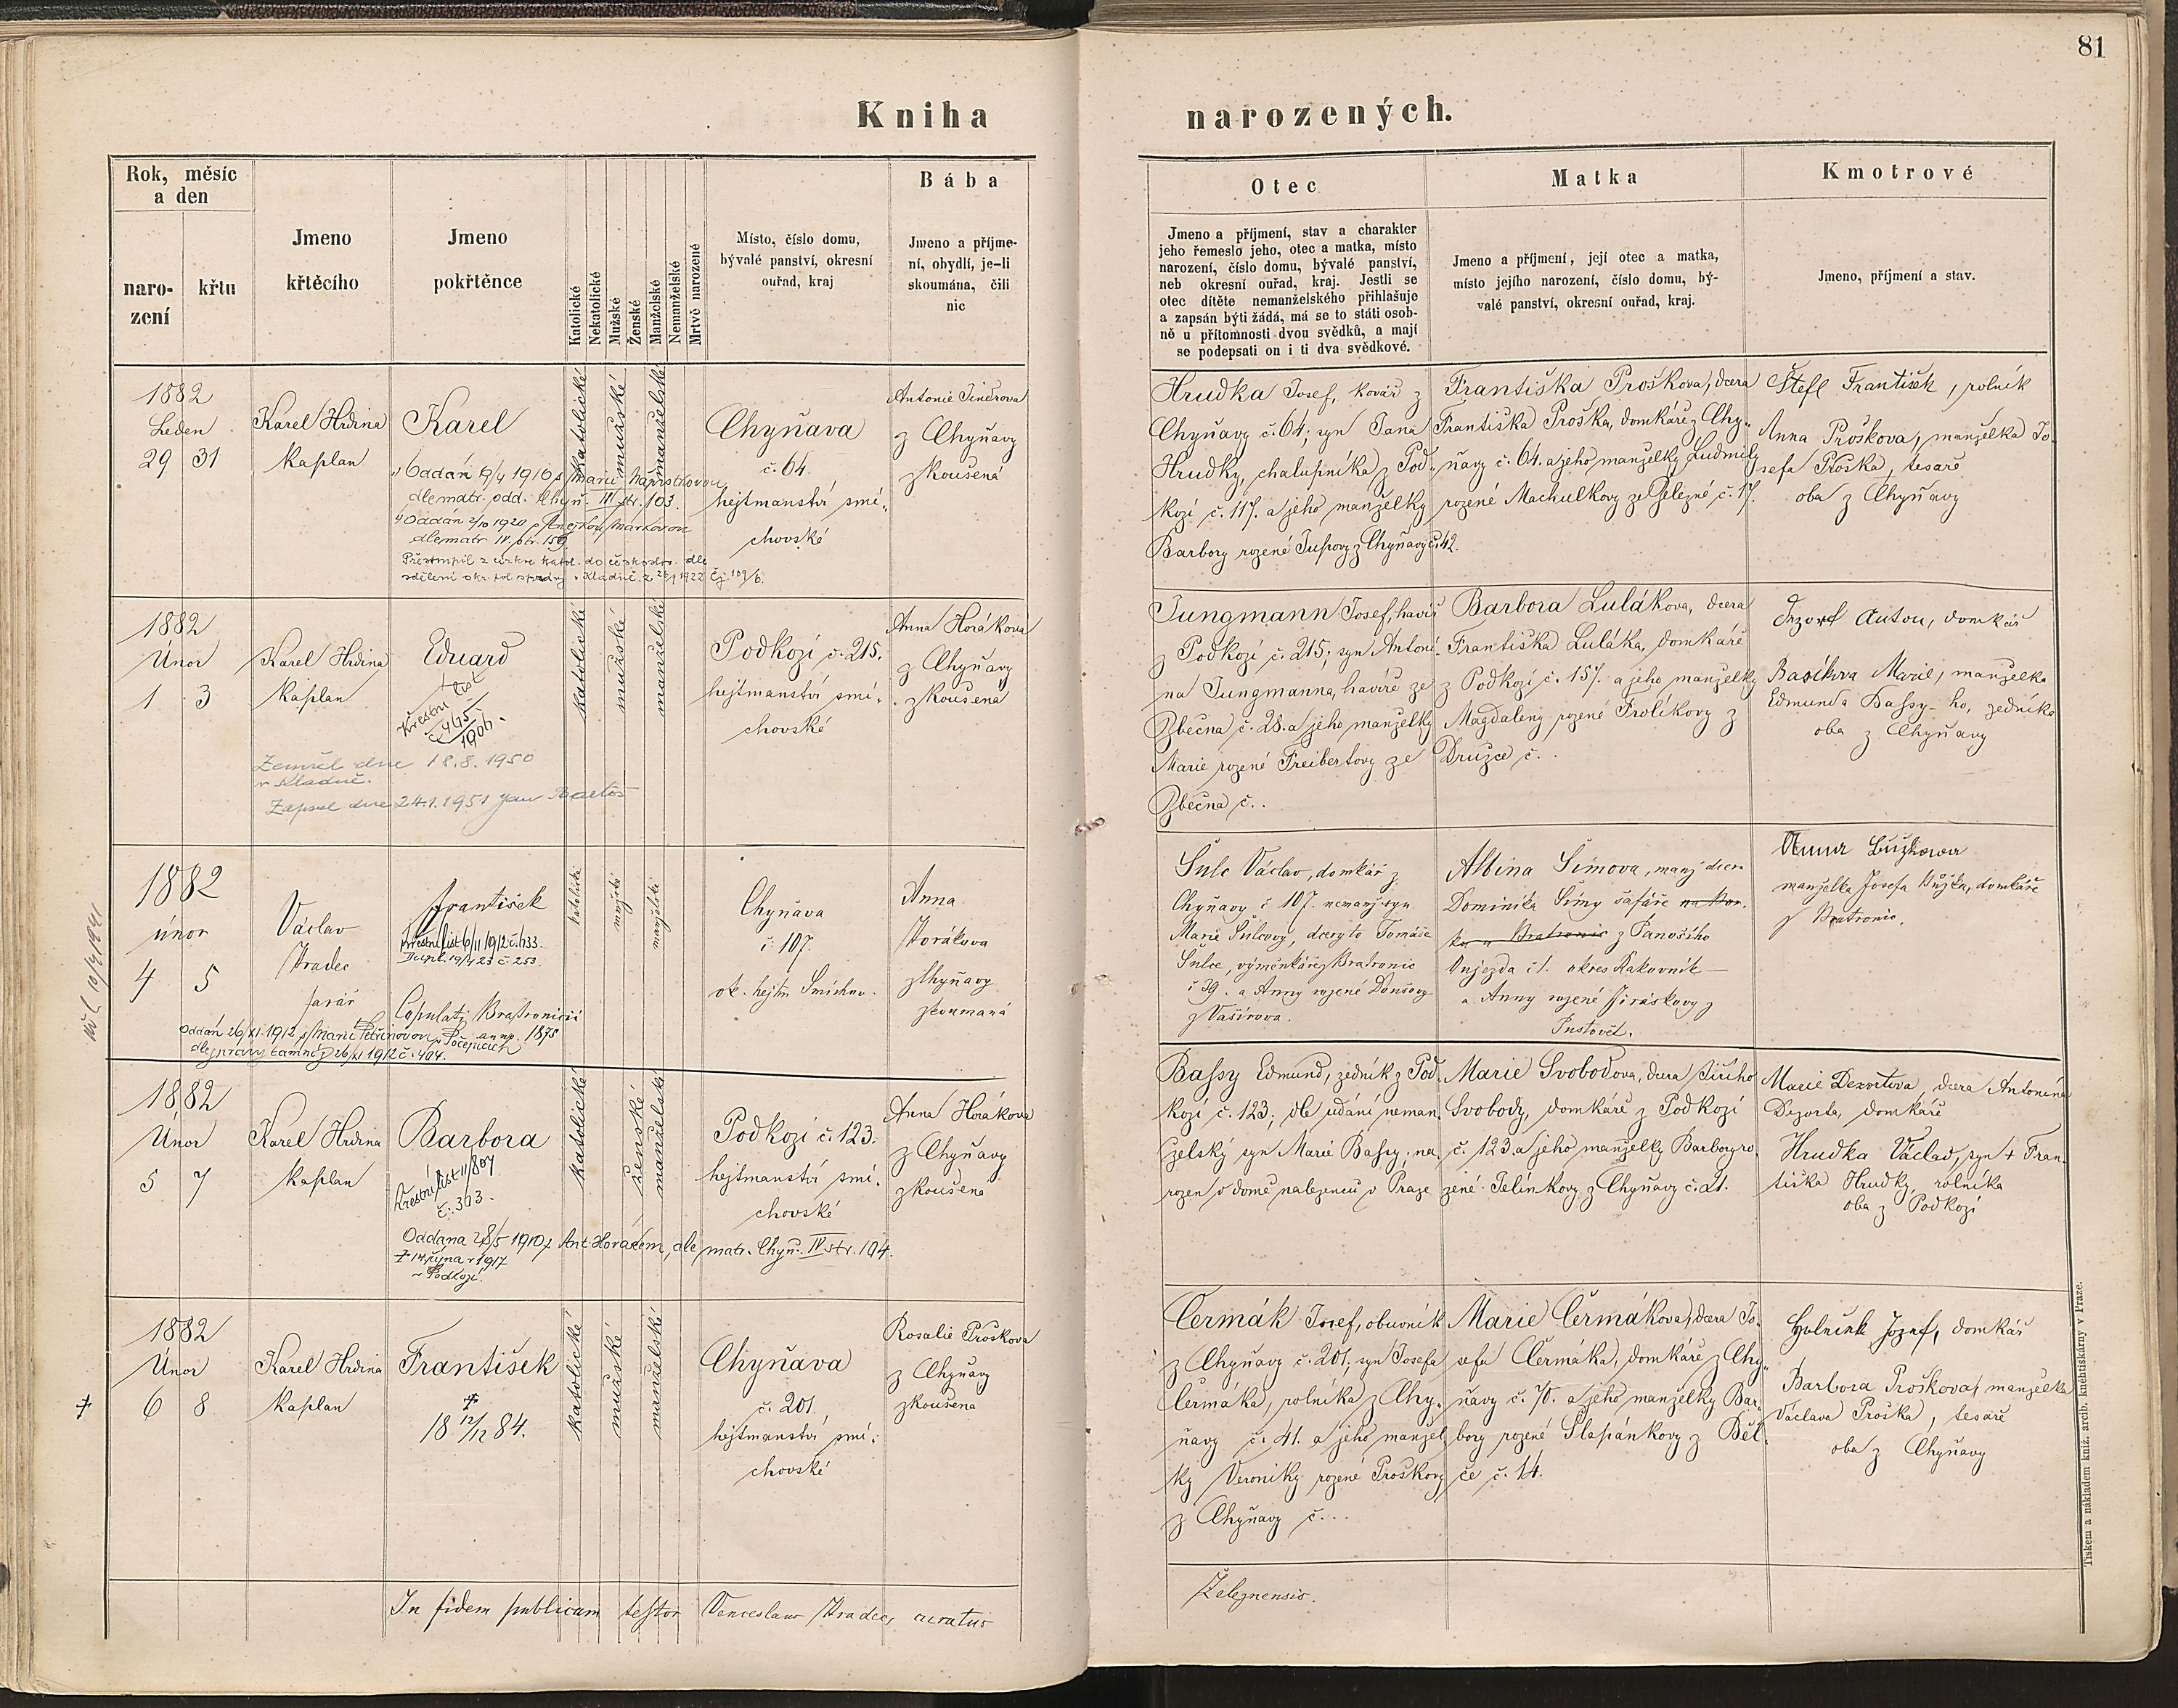 81
Kniha narozených.
Rok, měsíc
a den
naro-
zení
křtu
Jmeno
křtěcího
Jmeno
pokřtěnce
Katolické
Nekatolické
Mužské
Ženské
Manželské
Nemanželské
Mrtvě narozené
Místo, číslo domu,
bývalé panství, okresní
ouřad, kraj
Bába
Jmeno a příjme-
ní, obydlí, je-li
skoumána, čili
nic
Otec
Jmeno a příjmení, stav a charakter
jeho řemeslo jeho, otec a matka, místo
narození, číslo domu, bývalé panství,
neb okresní ouřad, kraj. Jestli se
otec dítěte nemanželského přihlašuje
a zapsán býti žádá, má se to státi osob-
ně u přítomnosti dvou svědků, a mají
se podepsati on i ti dva svědkové.
Matka
Jmeno a příjmení, její otec a matka,
místo jejího narození, číslo domu, bý-
valé panství, okresní ouřad, kraj.
Kmotrové
Jmeno, příjmení a stav.
1882
Leden
29 31
Karel Hrdina
kaplan
Karel
Oddán 6/4 1910 s Marií Náprstkovou
dle matr. odd. Chyň. III str. 103.
Oddán 2/10 1920 s Anežkou Markovou
dle matr. IV. str. 159
Přestoupil z církve katol. do českoslov. dle
sdělení okr. pol. správy v Kladně z 1922 čj. 109/6.
katolické
mužské
manželské
Chyňava
č. 64.
hejtmanství smí-
chovské
Antonie Jindrova
z Chyňavy
zkoušená
Hrudka Josef, kovář z
Chyňavy č. 64; syn Jana
Hrudky, chalupníka z Pod-
kozí č. 117. a jeho manželky
Barbory rozené Tupovy z Chyňavy č. 42.
Františka Proškova, dcera
Františka Proška, domkáře z Chy-
ňavy č. 64. a jeho manželky Ludmily
rozené Machulkovy ze Železné č. 17.
Štefl František, rolník
Anna Proškova, manželka Jo-
sefa Proška, tesaře
oba z Chyňavy
1882
Únor
1 3
Karel Hrdina
kaplan
Eduard
Křestní list
č. 465
1906.
Zemřel dne 18.8.1950
v Kladně.
Zapsal dne 24.1.1951 Jan Bartoš
katolické
mužské
manželské
Podkozí č. 215.
hejtmanství smí-
chovské
Anna Horákova
z Chyňavy
zkoušená
Jungmann Josef, havíř
z Podkozí č. 215; syn Antoní-
na Jungmanna, havíře ze
Zbečna č. 28. a jeho manželky
Marie rozené Freibertovy ze
Zbečna č..
Barbora Lulákova, dcera
Františka Luláka, domkáře
z Podkozí č. 157. a jeho manželky
Magdaleny rozené Frolíkovy z
Družce č..
Anton, domkář
Marie, manželka
Edmunda Bassy-ho, zedníka
oba z Chyňavy
1882
únor
4 5
Václav
Hradec
farář
František
Křestní list 6/11 1912 č. 1133.
Dupl. 19/4 23 č. 253.
Copulatj Bratronicii
Oddán 26/XI. 1912 s Marií Petřinovou v Počeplicích
dle zprávy tamní z 26/XI 1912 č. 404.
katolické
mužské
manželské
Chyňava
č. 107.
ok. hejtm. Smíchov.
Anna
Horákova
z Chyňavy
zkoumaná
Šulc Václav, domkář z
Chyňavy č 107. nemanž. syn
Marie Šulcovy, dcery to Tomáše
Šulce, výměnkáře z Bratronic
č 39. a Anny rozené Doušovy
z Vašírova.
Albina Šímova, manž dcera
Dominika Šímy šafáře
z Panošího
Oujezda č 1. okres Rakovník
a Anny rozené Jiráskovy z
Pustovět.
Anna Bužkowa
manželka Josefa Bůžka, domkáře
z Bratronic.
1882
Únor
5 7
Karel Hrdina
kaplan
Barbora
Křestní list 11/8 07
č. 313.
Oddana 28/5 1910 s Ant. Horákem, dle matr. Chyň. IV str. 104.
† 14. října 1917
v Podkozí.
katolické
ženské
manželské
Podkozí č. 123.
hejtmanství smí-
chovské
Anna Horákova
z Chyňavy
zkoušená
Bassy Edmund, zedník z Pod-
kozí č. 123; dle udání neman-
želský syn Marie Bassy; na-
rozen v domě nalezenců v Praze
Marie Svobodova, dcera Jiřího
Svobody, domkáře z Podkozí
č. 123. a jeho manželky Barbory ro-
zené Jelínkovy z Chyňavy č. 21.
Marie Dezortova, dcera Antonína
Dezorta, domkáře
Hrudka Václav, syn † Fran-
tiška Hrudky, rolníka
oba z Podkozí
1882
Únor
† 6 8
Karel Hrdina
kaplan
František
†
18 12/12 84.
katolické
mužské
manželské
Chyňava
č. 201.
hejtmanství smí-
chovské
Rosalie Proškova
z Chyňavy
zkoušena
Čermák Josef, obuvník
z Chyňavy č. 201; syn Josefa
Čermáka, rolníka z Chy-
ňavy č. 41. a jeho manžel-
ky Veroniky rozené Proškovy
z Chyňavy č...
Marie Čermákova, dcera Jo-
sefa Čermáka, domkáře z Chy-
ňavy č. 70. a jeho manželky Bar-
bory rozené Šlapánkovy z Běl-
če č. 14.
Josef, domkář
Barbora Proškova, manželka
Václava Proška, tesaře
oba z Chyňavy
In fidem publicam testor Venceslaus Hradec, curatus
Železnensis.
Tiskem a nákladem kníž. arcib. kněhtiskárny v Praze.